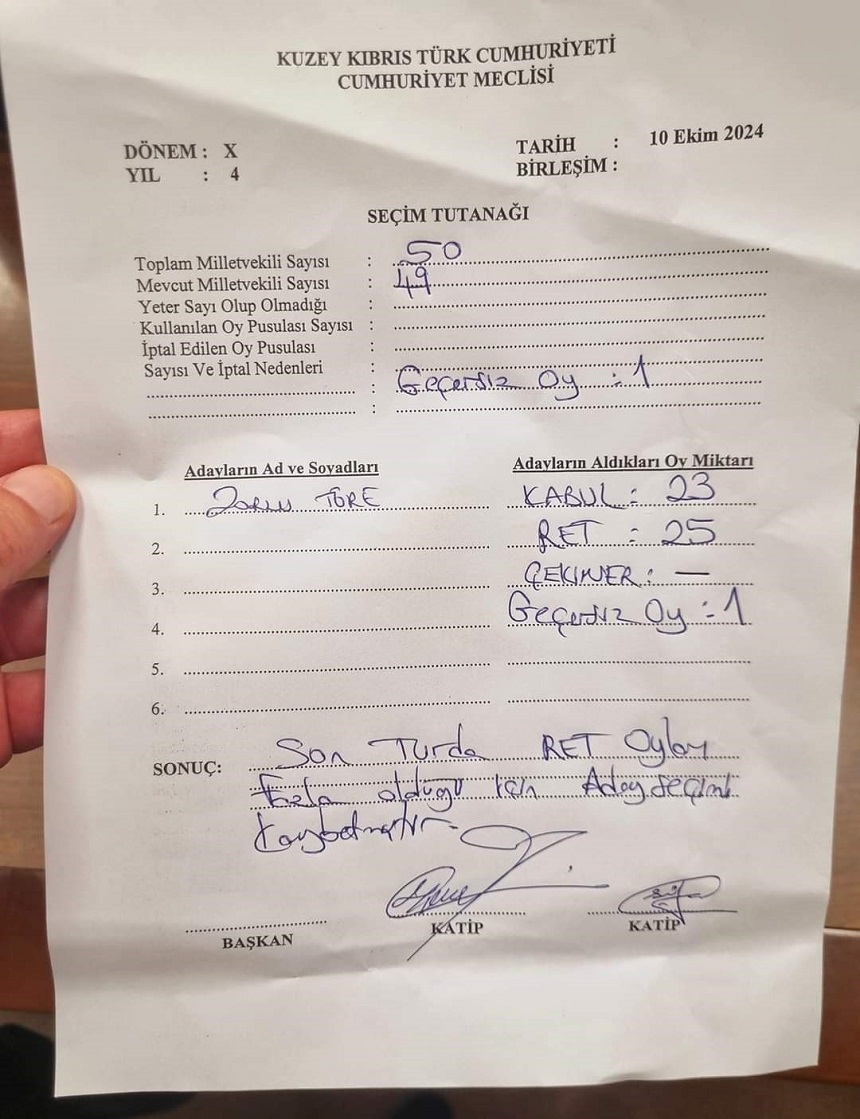 KUZEY KIBRIS TÜRK CUMHURİYETİ
CUMHURİYET MECLİSİ
DÖNEM : X
TARİH : 10 Ekim 2024
YIL : 4
BİRLEŞİM :
SEÇİM TUTANAĞI
Toplam Milletvekili Sayısı : 50
Mevcut Milletvekili Sayısı : 49
Yeter Sayı Olup Olmadığı :
Kullanılan Oy Pusulası Sayısı :
İptal Edilen Oy Pusulası :
Sayısı Ve İptal Nedenleri :
: Geçersiz Oy : 1
:
Adayların Ad ve Soyadları
Adayların Aldıkları Oy Miktarı
1. Zorlu TÖRE KABUL : 23
2. RET : 25
3. ÇEKİMSER : —
4. Geçersiz Oy : 1
5.
6.
SONUÇ: Son Turda RET Oyları
fazla olduğu için Aday seçimi
kaybetmiştir.
BAŞKAN
KATİP
KATİP